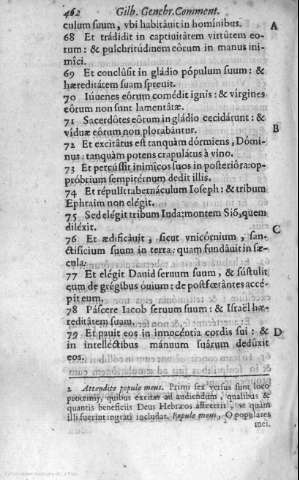 462 Gilb. Genebr. Comment.
culum suum, vbi habitáuit in homínibus. A
68 Et trádidit in captiuitátem virtútem eo-
rum: & pulchritúdinem eórum in manus ini-
míci.
69 Et conclúsit in gládio pópulum suum: &
hæreditátem suam spreuit.
70 Iúuenes eórum comédit ignis: & vírgines
eórum non sunt lamentátæ.
71 Sacerdótes eórum in gládio cecidérunt: &
víduæ eórum non plorabántur. B
72 Et excitátus est tanquàm dórmiens, Dómi-
nus: tanquàm potens crapulátus à vino.
73 Et percússit inimícos suos in posterióra: op-
próbrium sempitérnum dedit illis.
74 Et répulit tabernáculum Ioseph: & tribum
Ephraim non elégit.
75 Sed elégit tribum Iuda: montem Siõ, quem
diléxit. C
76 Et ædificáuit, sicut vnicórnium, san-
ctifícium suum in terra: quam fundáuit in sæ-
cula.
77 Et elégit Dauid seruum suum, & sústulit
eum de grégibus óuium: de postfœtántes accé-
pit eum.
78 Páscere Iacob seruum suum: & Israël hæ-
reditátem suam.
79 Et pauit eos in innocéntia cordis sui: & D
in intelléctibus mánuum suárum dedúxit
eos.
1 Attendite popule meus. Primi sex versus sunt loco
proœmij, quibus excitat ad audiendum, qualibus &
quantis beneficiis Deus Hebræos affecerit, & quàm
illi fuerint ingrati includat. Popule meus, O populares
mei.